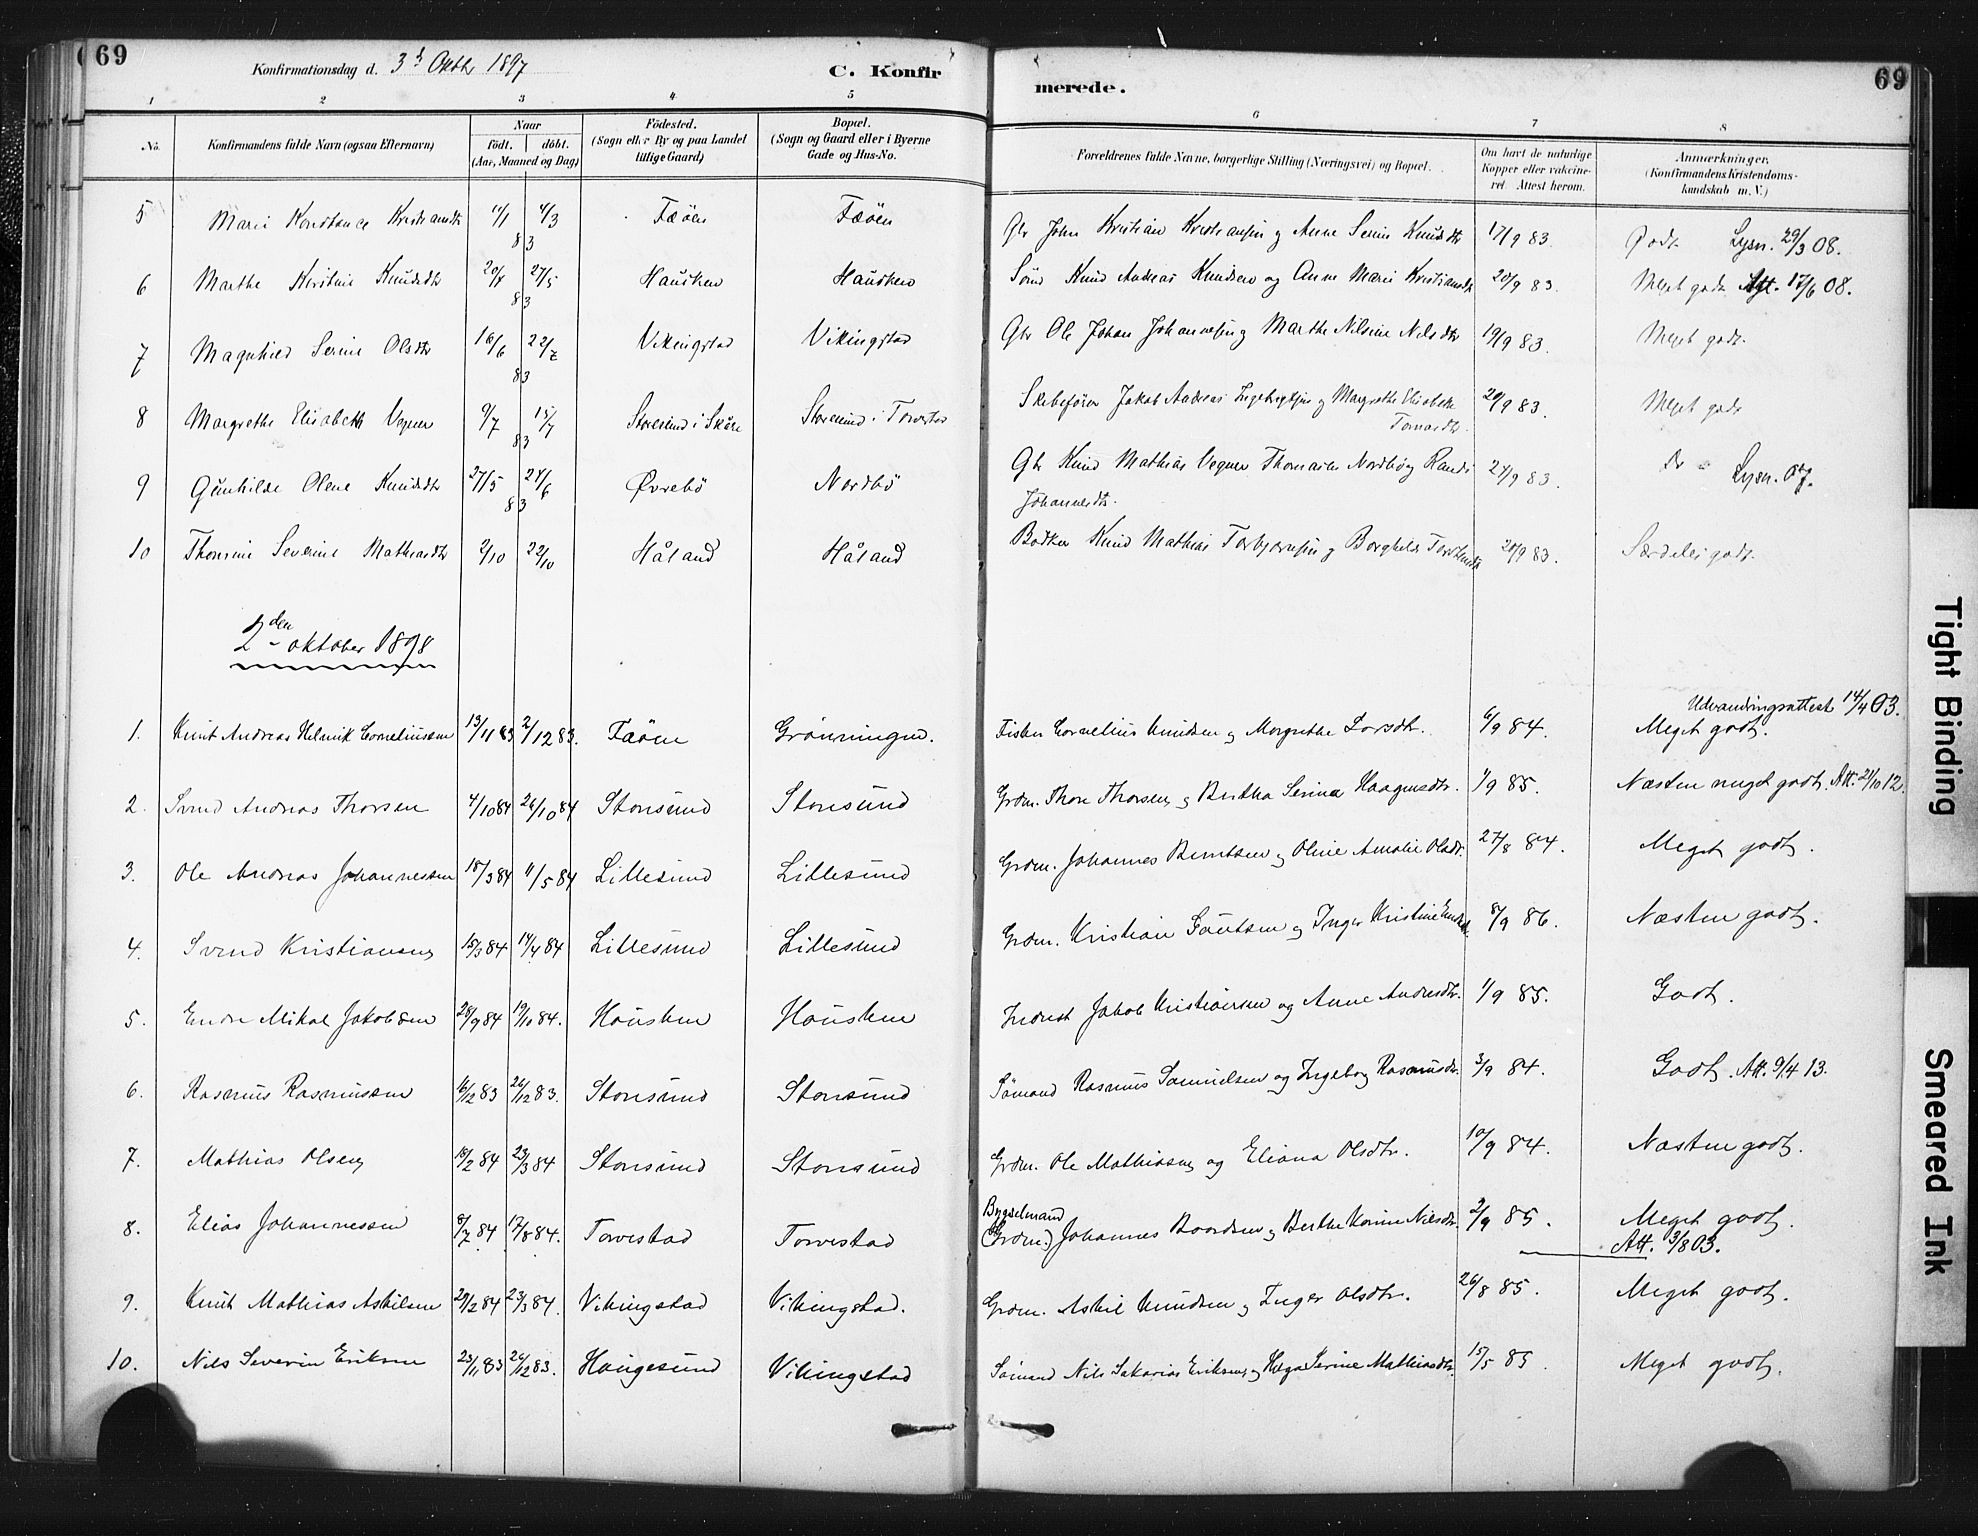 69
Konfirmationsdag d. 3d Oktbr 1897
C. Konfir
merede.
69
1 2 3 4 5 6 7 8
No.
Konfirmandens fulde Navn (ogsaa Efternavn)
Naar
født. døbt.
(Aar, Maaned og Dag)
Fødested.
(Sogn eller By og paa Landet
tillige Gaard)
Bopæl.
(Sogn og Gaard eller i Byerne
Gade og Hus-No.
Forældrenes fulde Navne, borgerlige Stilling (Næringsvei) og Bopæl.
Om havt de naturlige
Kopper eller vakcine-
ret. Attest herom.
Anmærkninger.
(Konfirmandens Kristendoms-
kundskab m. V.)
5 Marie Konstance Kristiansdtr 11/1 4/3 83 Fæøen Fæøen Gbr John Kristian Kristiansen og Anne Serine Knudsdtr 17/9 83. Godt. Lysn. 29/3 08.
6 Marthe Kristine Knudsdtr 27/5 83 Hausken Hausken Sømd Knud Andreas Knudsen og Anne Marie Kristiansdtr 20/9 83. Meget godt Att. 17/6 08.
7 Magnhild Serine Olsdtr 16/6 22/7 83 Vikingstad Vikingstad Gbr Ole Johan Johannesen og Marthe Nilsine Nilsdtr 19/9 83. Meget godt.
8 Margrethe Elisabeth Vegner 9/7 15/7 83 Storesund i Skåre Storesund i Torvestad Skibsfører Jakob Andreas Ingebrigtsen og Margrethe Elisabeth 20/9 83. Meget godt
9 Gunhilde Olene Knudsdtr 27/5 24/6 83 Øvrebö Nordbö Gbr Knud Mathias Vegner Thomasen Nordbö og Randi 21/9 83. Lysn. 07.
Johannesdtr.
10 Thomine Severine Mathiasdtr 2/10 22/10 Håland Håland Bødker Knud Mathias Torbjørnsen og Borghilde 20/9 83. Særdeles godt.
2den oktober 1898
Udvandringsattest 14/4 03.
1. Knut Andreas Helmik Corneliussen 13/11 83 2/12 83. Fäöen Grønningen. Fisker Cornelius Knudsen og Margrethe Larsdtr. 6/9 84. Meget godt.
2. Svend Andreas Thorsen 4/10 84 26/10 84 Storesund Storesund Grdm. Thore Thorsen og Bertha Serina Haagensdtr. 1/9 85. Næsten meget godt. Att. 21/10 12.
3. Ole Andreas Johannessen 18/3 84 11/5 84 Lillesund Lillesund Grdm. Johannes Berntsen og Oline Amalie Olsdtr. 27/8 84. Meget godt.
4. Svend Kristiansen 15/3 84 14/4 84 Lillesund Lillesund Grdm. Kristian Gautsen og Inger Kristine 8/9 86. Næsten godt.
5. Endre Mikal Jakobsen 28/9 84 19/10 84. Hausken Hausken Inderst Jakob Kristiansen og Anne Andersdtr. 1/9 85. Godt.
6. Rasmus Rasmussen 16/12 83 26/12 83. Storesund Storesund Sömand Rasmus Samuelsen og Ingeborg Rasmusdtr. 3/9 84. Godt. Att. 9/4 13.
7. Mathias Olsen 18/2 84 23/3 84 Storesund Storesund Grdm. Ole Mathiasen og Eliana Olsdtr. 10/9 84. Næsten godt.
8. Elias Johannessen 8/7 84 17/8 84. Torvestad Torvestad Bygselmand (Grdm.) Johannes Baardsen og Berthe Karine Nilsdtr. 2/9 85. Meget godt.
Att. 3/8 03.
9. Knut Mathias Askilsen 29/2 84 23/3 84. Vikingstad Vikingstad. Grdm. Askil Knudsen og Inger Olsdtr. 26/8 85. Meget godt.
10. Nils Severin Eriksen 23/11 83 26/12 83. Haugesund Vikingstad Sömand Nils Sakarias Eriksen og Helga Serine Mathiasdtr. 15/5 85. Meget godt.
Tight Binding
Smeared Ink